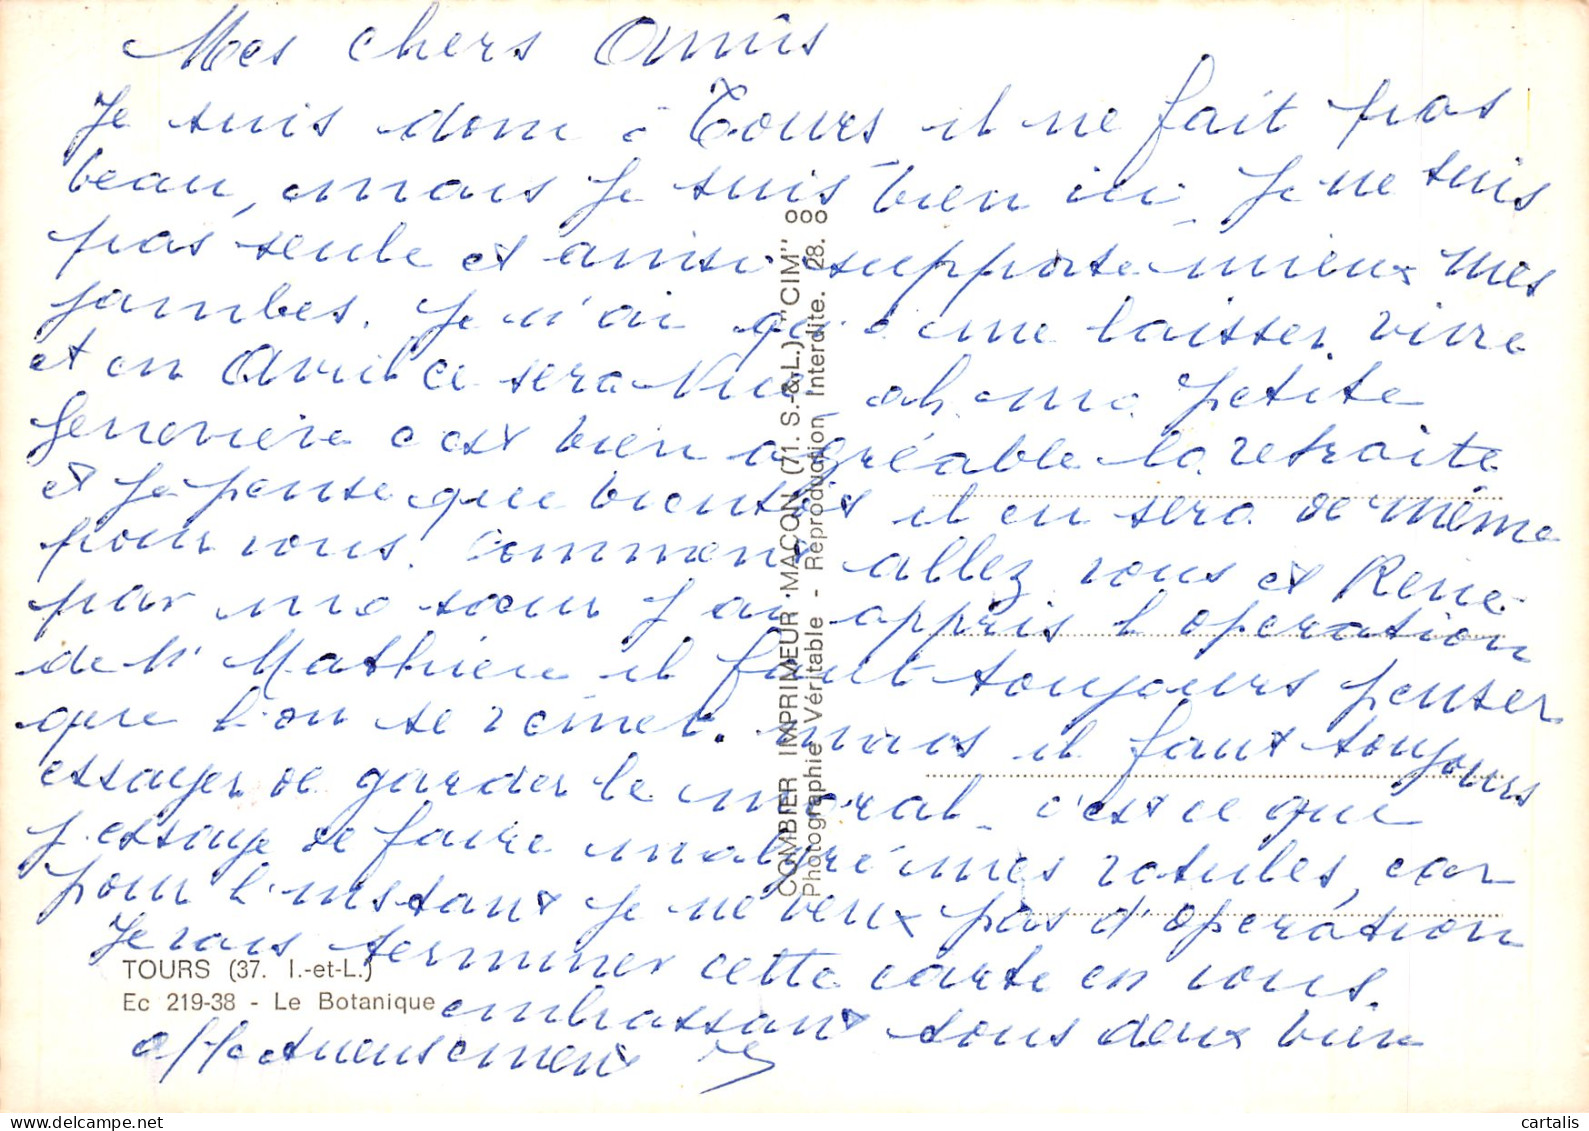 Mes chers Amis
Je suis donc à Tours il ne fait pas
beau, mais je suis bien ici. Je ne suis
pas seule et ainsi supporte mieux mes
jambes. Je n'ai qu'à me laisser vivre
et en Avril ce sera Nice, ah ma petite
Genevieve c'est bien agréable la retraite
et je pense que bientôt il en sera de même
pour vous. Comment allez vous et René
par ma sœur j'ai appris l'operation
de Mathieu il faut toujours penser
que l'on se remet. mais il faut toujours
essayer de garder le moral. c'est ce que
j'essaye de faire malgré mes rotules, car
pour l'instant je ne veux pas d'opération
Je vais terminer cette carte en vous
embrassant tous deux bien
affectueusement
COMBIER IMPRIMEUR MACON (71. S.-&-L.) "CIM"
Photographie Véritable - Reproduction Interdite. 28.
TOURS (37. I.-et-L.)
Ec 219-38 - Le Botanique
cartalis